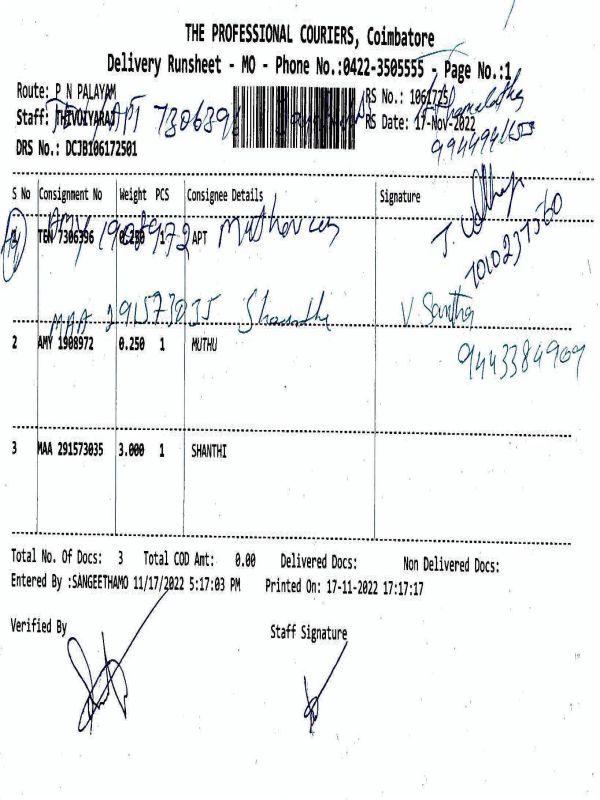 THE PROFESSIONAL COURIERS, Coimbatore
Delivery Runsheet - MO - Phone No.:0422-3505555 - Page No.:1
Route: P N PALAYAM RS No.: 1061725
Staff: RS Date: 17-Nov-2022
7306396
DRS No.: DCJB106172501
S No Consignment No Weight PCS Consignee Details Signature
TEN 7306396 0.250 1 APT
AMY 1908972
MAA 291573035 Shanthi V Santha
2 AMY 1908972 0.250 1 MUTHU
9443384909
3 MAA 291573035 3.000 1 SHANTHI
Total No. Of Docs: 3 Total COD Amt: 0.00 Delivered Docs: Non Delivered Docs:
Entered By :SANGEETHAMO 11/17/2022 5:17:03 PM Printed On: 17-11-2022 17:17:17
Verified By Staff Signature